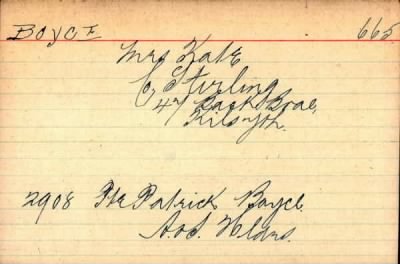 BOYCE 665
Mrs Kate
C/o Stirling
47 Back Brae,
Kilsyth.
2908 Pte Patrick Boyce.
A. & S. Hldrs.